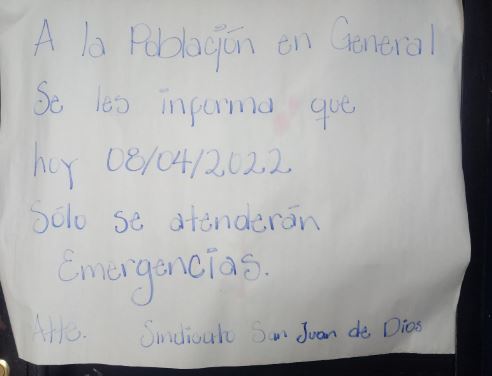 A la Población en General
Se les informa que
hoy 08/04/2022
Sólo se atenderán
Emergencias.
Atte. Sindicato San Juan de Dios